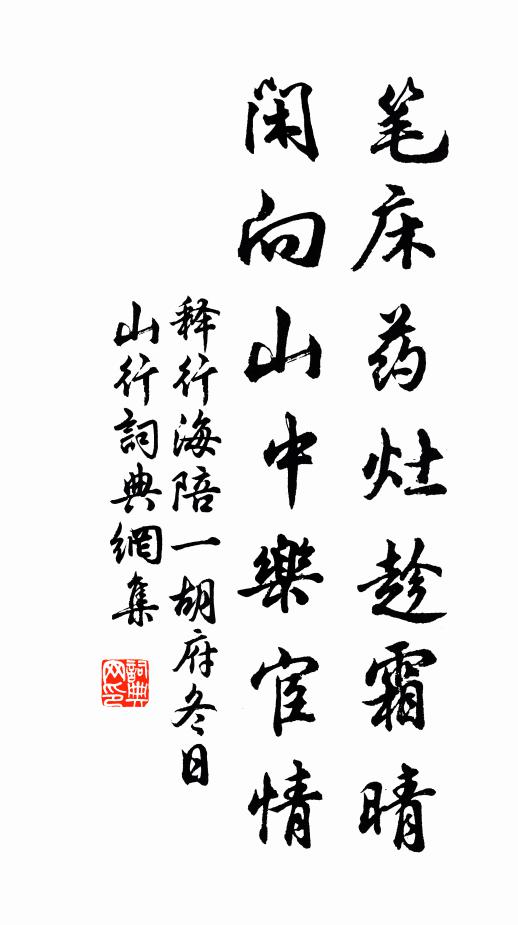 笔床药灶趁霜晴
闲向山中樂宦情
释行海陪一胡府冬日
山行詞典網集
詞典
网印